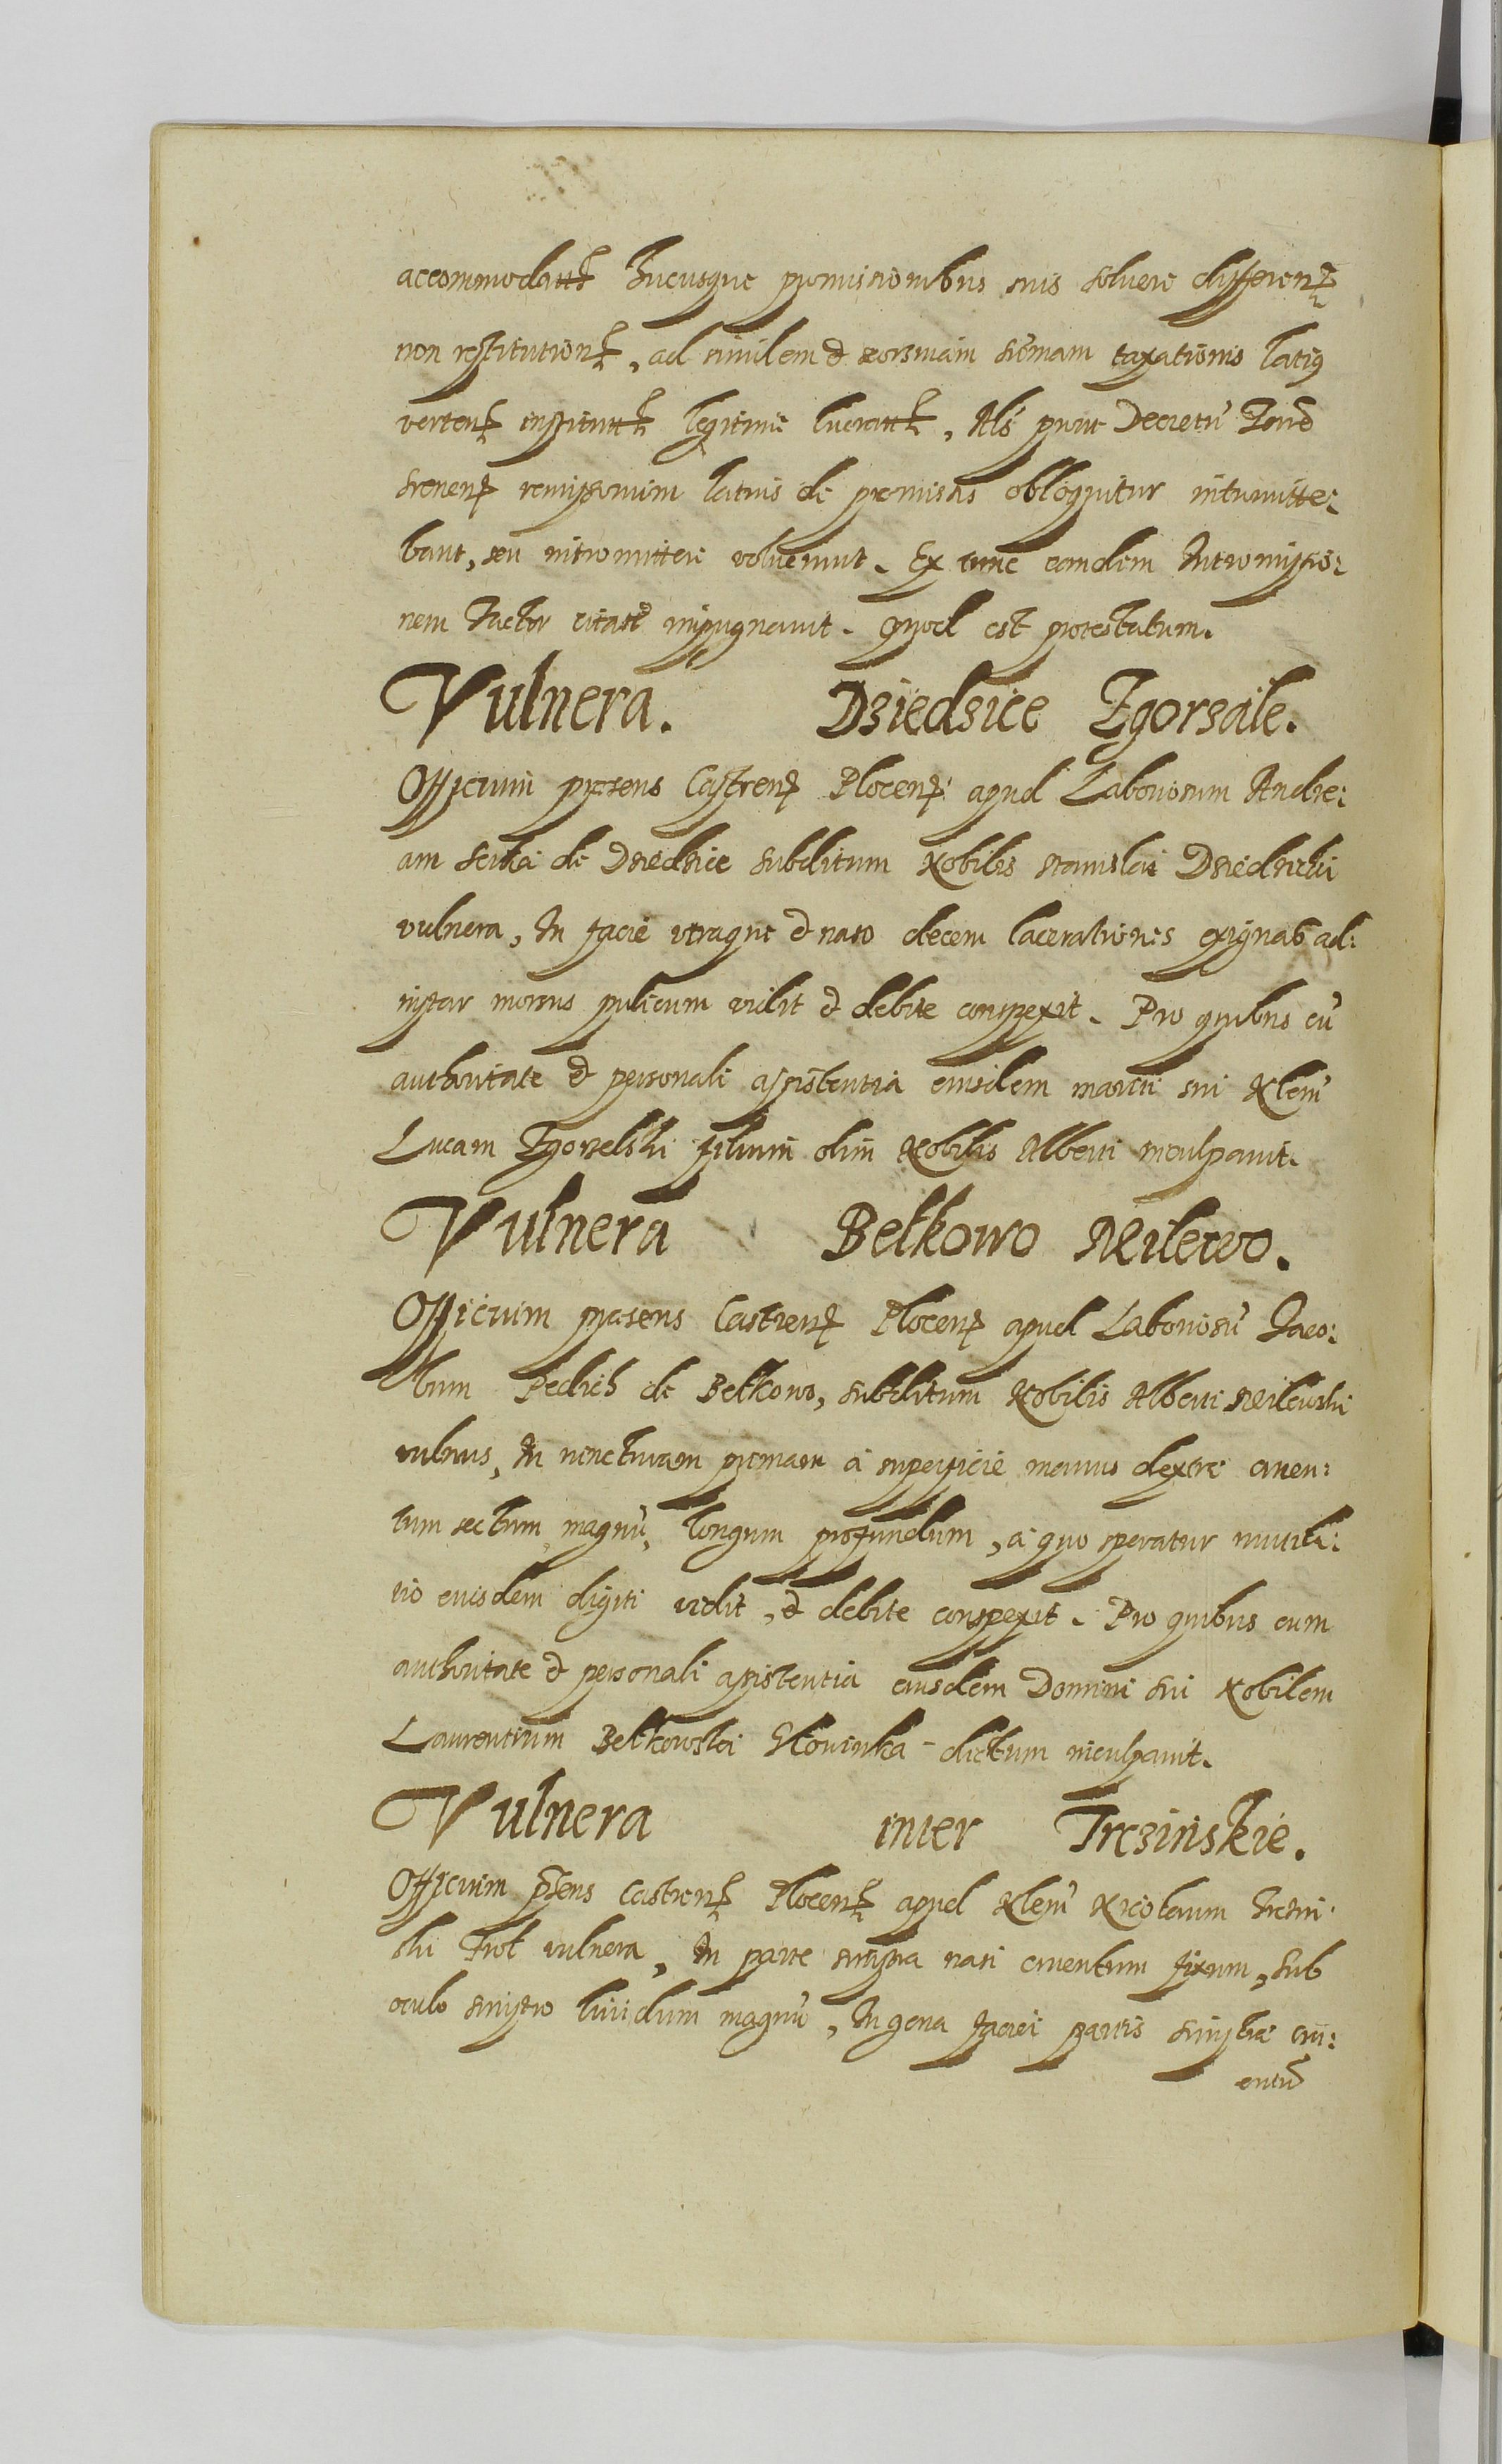 accommodatt hucusque promissionibus suis soluere differen
non restitution, ad similem & seorsiuam summam taxationis latius
verten institutt legitime lucratt, Als prout Decretū
remissivum latius de præmissis obloquitur intromitte:
bant, seu intromittere voluerunt. Ex tunc eandem Intromissio:
nem Actor citate impugnauit. Quod est protestatum.
Vulnera. Dziedzice Zgorzale.
Officium præsens Castren Plocen apud Laboriosum Andre:
am de Dziedzice subditum Nobilis Stanislai Dziedzicki
vulnera, In facie utraque & naso decem lacerationes exiguas ad:
instar morsus pulicum vidit & debite conspexit. Pro quibus cū
authoritate & personali assistentia eiusdem sui Nlem
Lucam Zgorzelski filium olim Nobilis Alberti inculpauit.
Vulnera Betkowo Milewo.
Officium præsens Castren Plocen apud Laboriosū Jaco:
bum de Betkowo, subditum Nobilis Alberti Milewski
vulnus, In iuncturam primam a superficie manus dextre cruen:
tum sectum, magnū, longum profundum, a quo speratur mutila:
tio eiusdem digiti vidit, & debite conspexit. Pro quibus cum
authoritate & personali assistentia eiusdem Domini sui Nobilem
Laurentium Betkowski dictum inculpauit.
Vulnera inter Trczinskie.
Officium pñs Castren Plocen apud Nlem Nicolaum Trczin:
ski vulnera, In parte sinistra nasi cruentum fixum, sub
oculo sinistro liuidum magnū, In gena faciei partis sinistræ cru:
entū